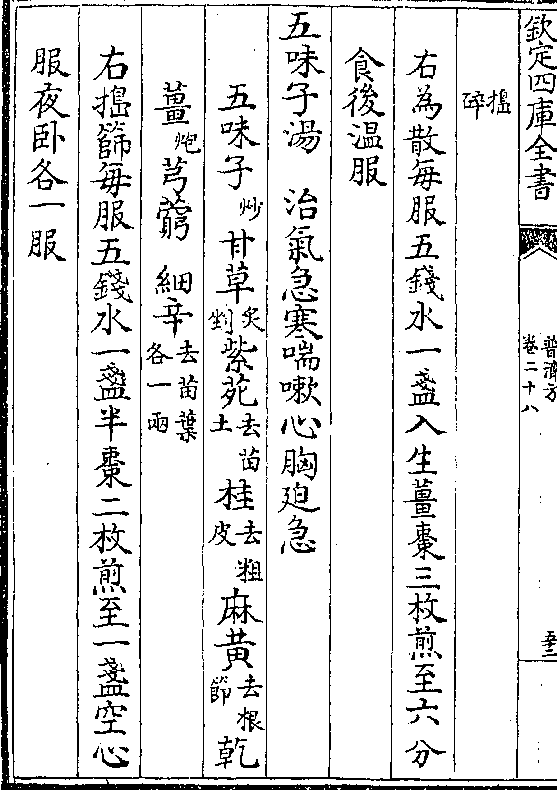 欽定四庫全書
普濟方
卷二十八
擣
碎
右為散每服五錢水一盞入生薑棗三枚煎至六分
食後温服
五味子湯　治氣急寒喘嗽心胸廹急
五味子炒甘草炙剉紫苑去苗土桂去粗皮麻黄去根節乾
薑炮芎藭　細辛去苗葉各一兩
右搗篩每服五錢水一盞半棗二枚煎至一盞空心
服夜卧各一服